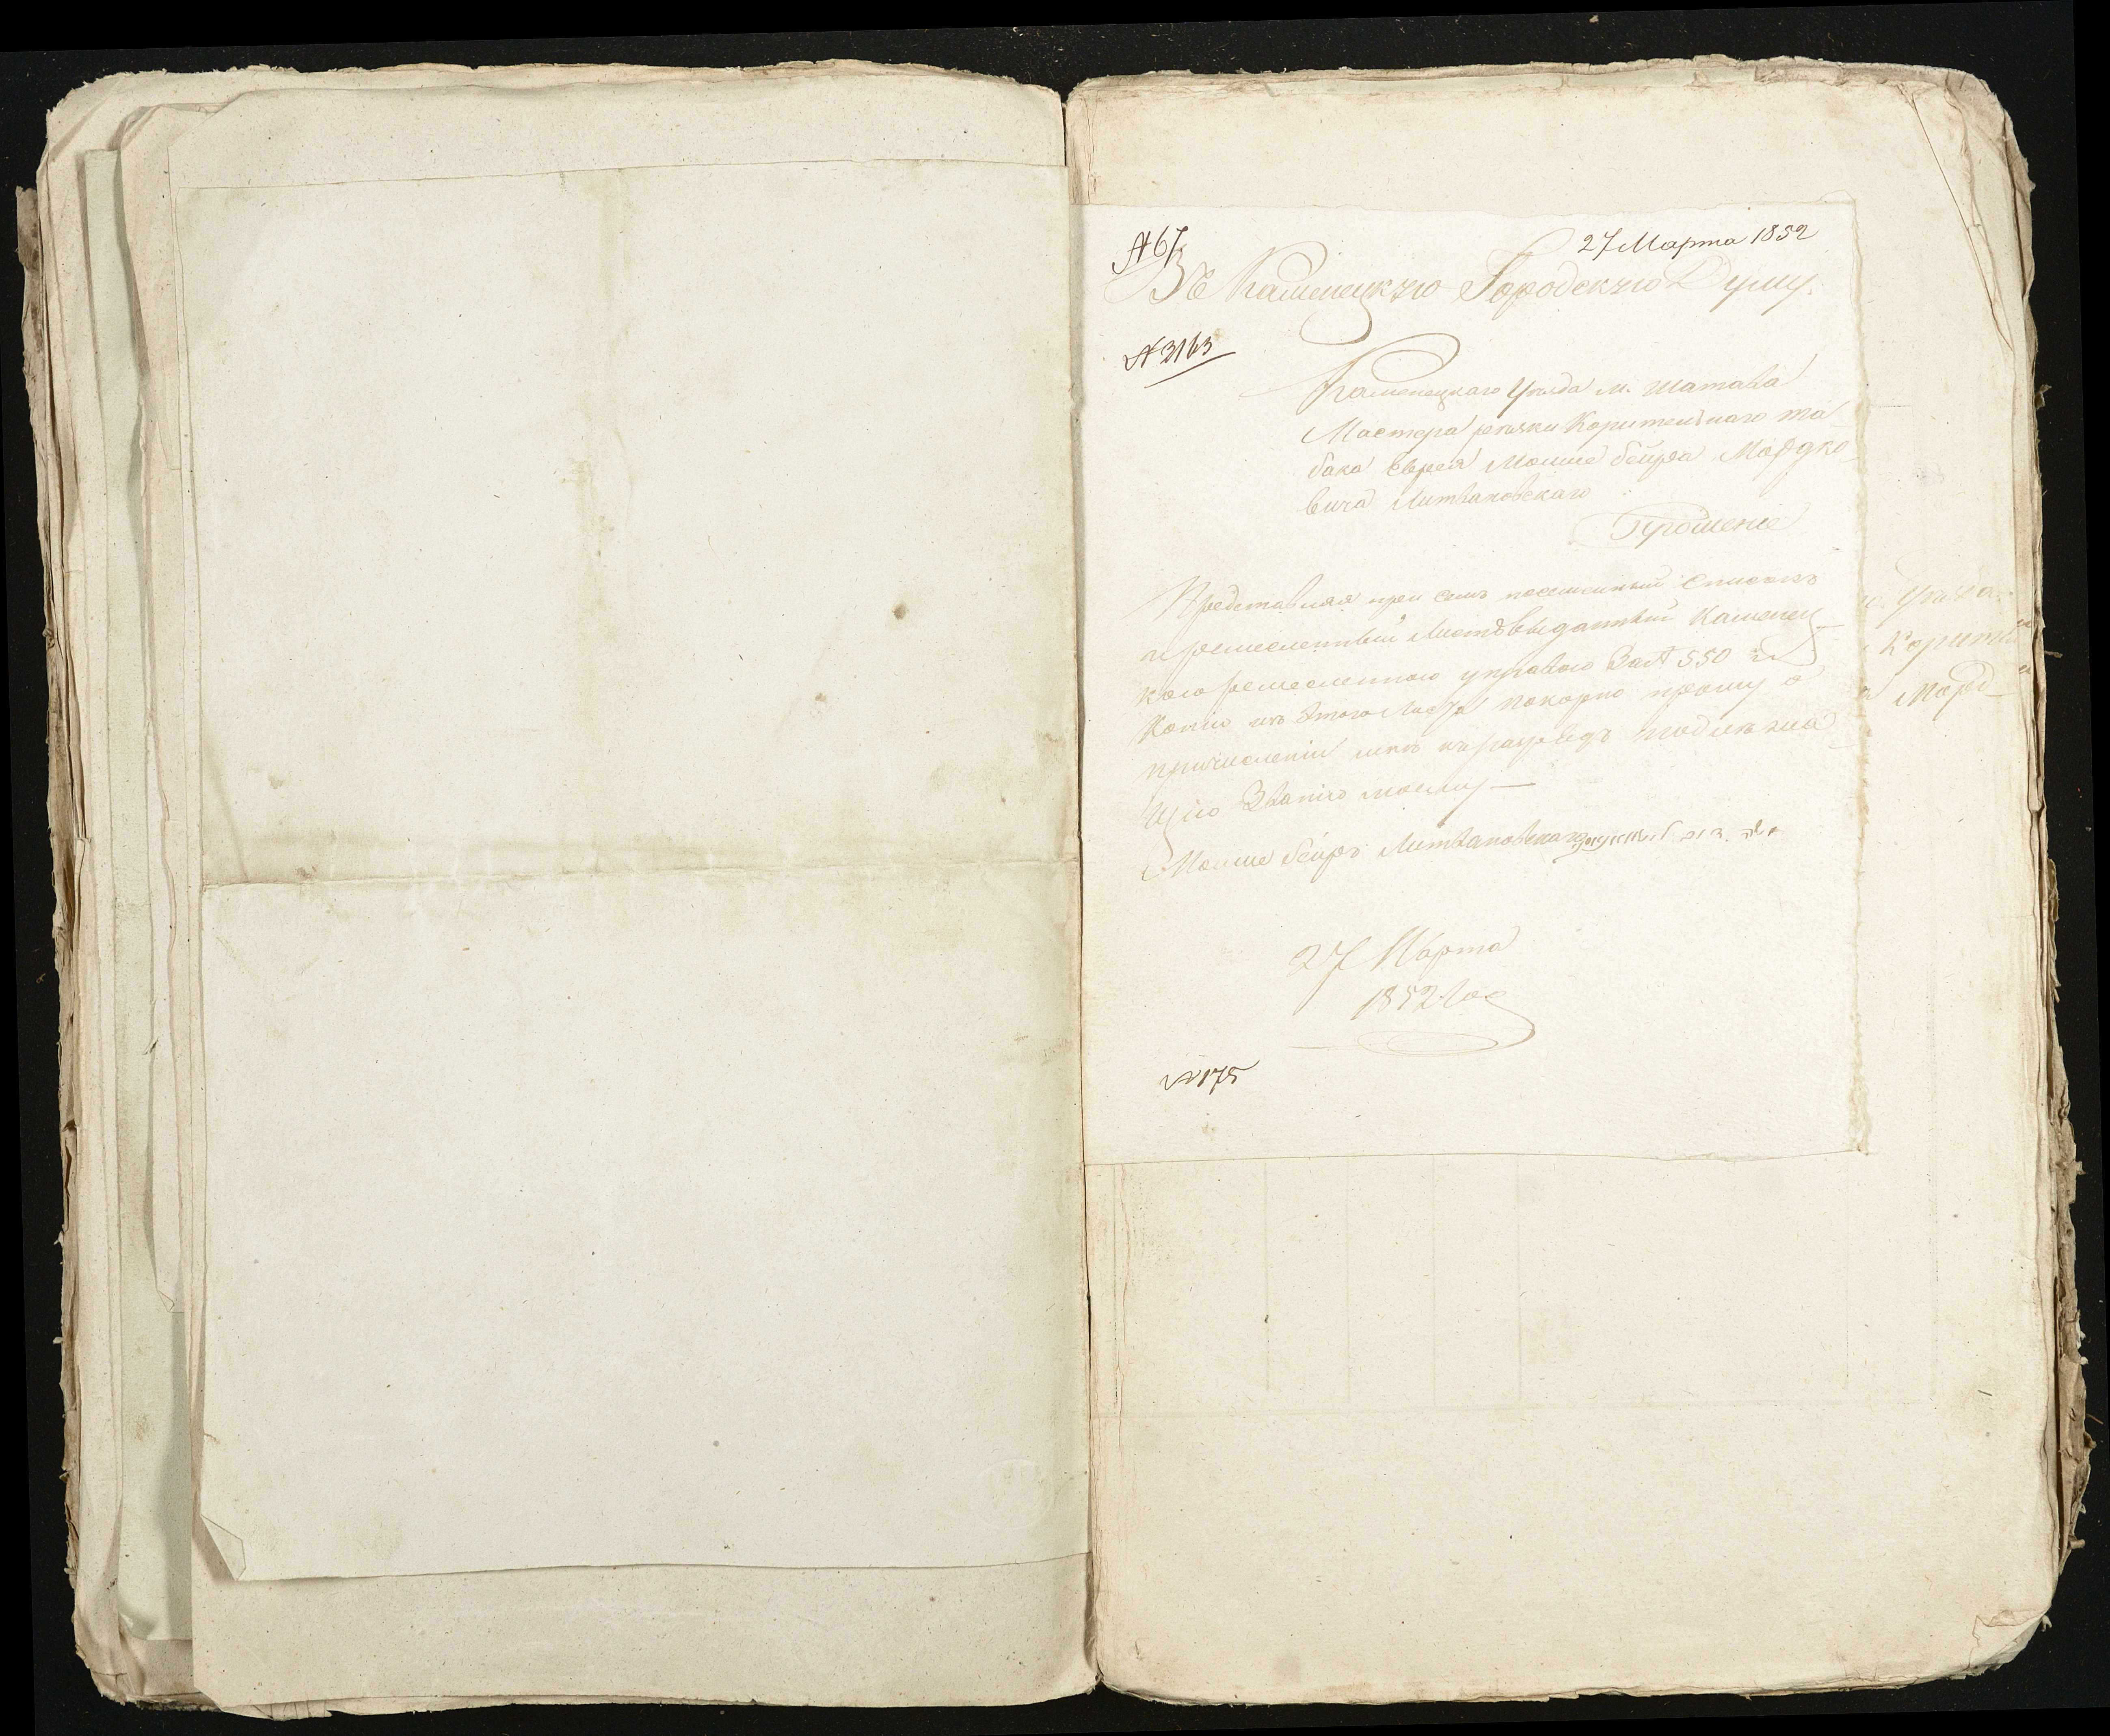 № 67.
27 Марта 1852
Въ Каменецкую Городскую Думу.
№ 3163
Каменецкаго Уѣзда м. Шатава
Мастера рѣзки Корительнаго та
бака Еврея Мошке Бейра Мордко
вича Литваковскаго
Прошение
Представляя при семъ посемейный Списокъ
и ремесленный Листъ выданный Каменец
кою ремесленною управою За № 550
Копію изъ Этого Листа покорно прошу о
причисленіи меня къ разряду подлежа
щую Званію моему —
Мошке Бейръ Литваковскаго
27 Марта
1852 Год
№ 175
Уѣзда
Корите
Морд